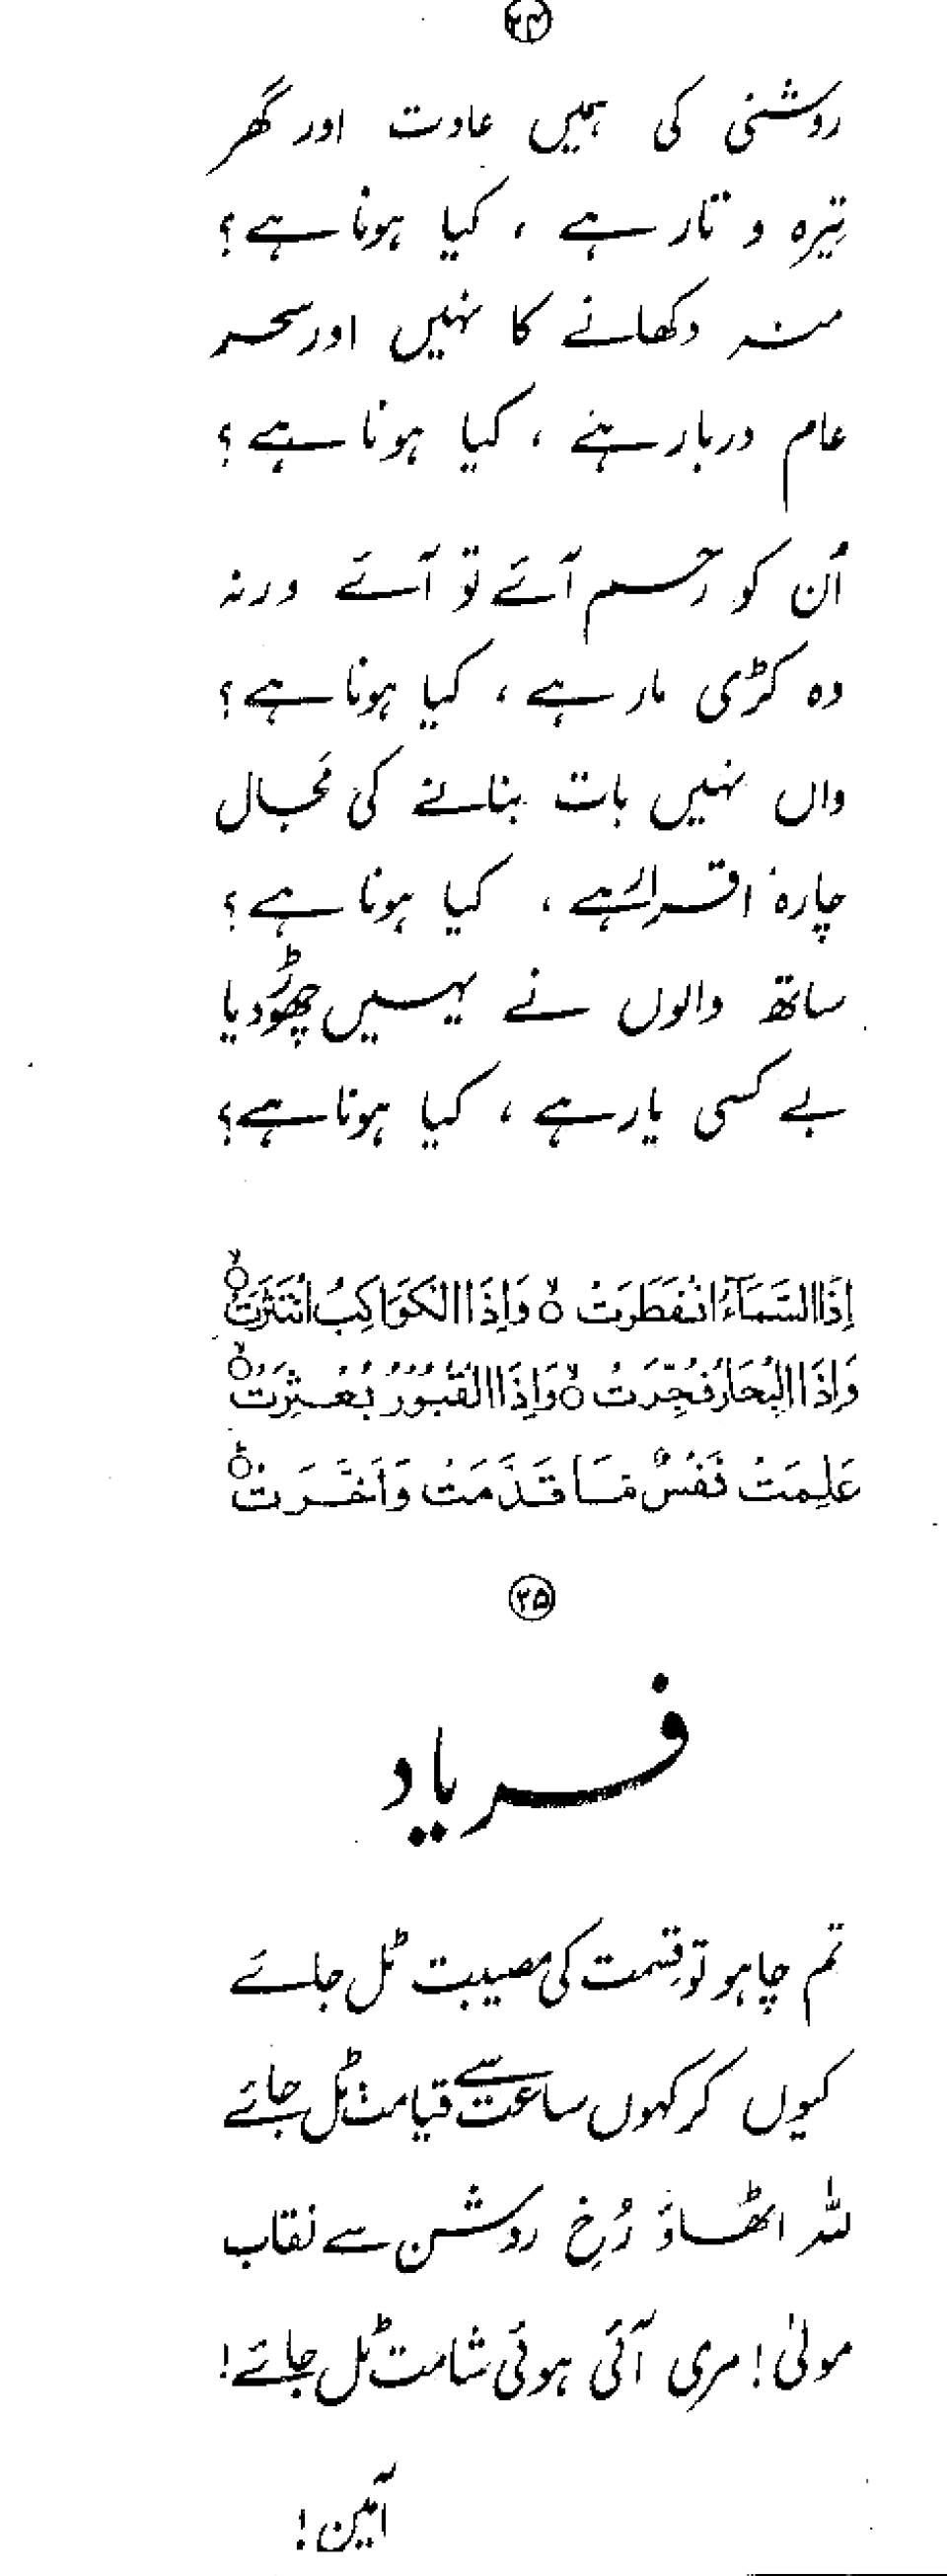 ۲۴
روشنی کی ہمیں عادت اور گھر
تیرہ و تار ہے ، کیا ہونا ہے ؟
منہ دکھانے کا نہیں اور سحر
عام دربار ہے ، کیا ہونا ہے ؟
اُن کو رحم آئے تو آئے ورنہ
وہ کڑی مار ہے ، کیا ہونا ہے ؟
واں نہیں بات بنانے کی مَجال
چارہ اقرار ہے ، کیا ہونا ہے ؟
ساتھ والوں نے یہیں چھوڑ دیا
بے کسی یار ہے ، کیا ہونا ہے ؟
اِذَا السَّمَآءُ انْفَطَرَتْ ۙ وَاِذَا الْكَوَاكِبُ انْتَثَرَتْ ۙ
وَاِذَا الْبِحَارُ فُجِّرَتْ ۙ وَاِذَا الْقُبُوْرُ بُعْثِرَتْ ۙ
عَلِمَتْ نَفْسٌ مَّا قَدَّمَتْ وَاَخَّرَتْ ؕ
۲۵
فریاد
تم چاہو تو قِسمت کی مصیبت ٹل جائے
کیوں کر کہوں ساعت سے قیامت ٹل جائے
للہ اٹھاؤ رُخِ روشن سے نقاب
مولیٰ ! مری آئی ہوئی شامت ٹل جائے !
آمین !